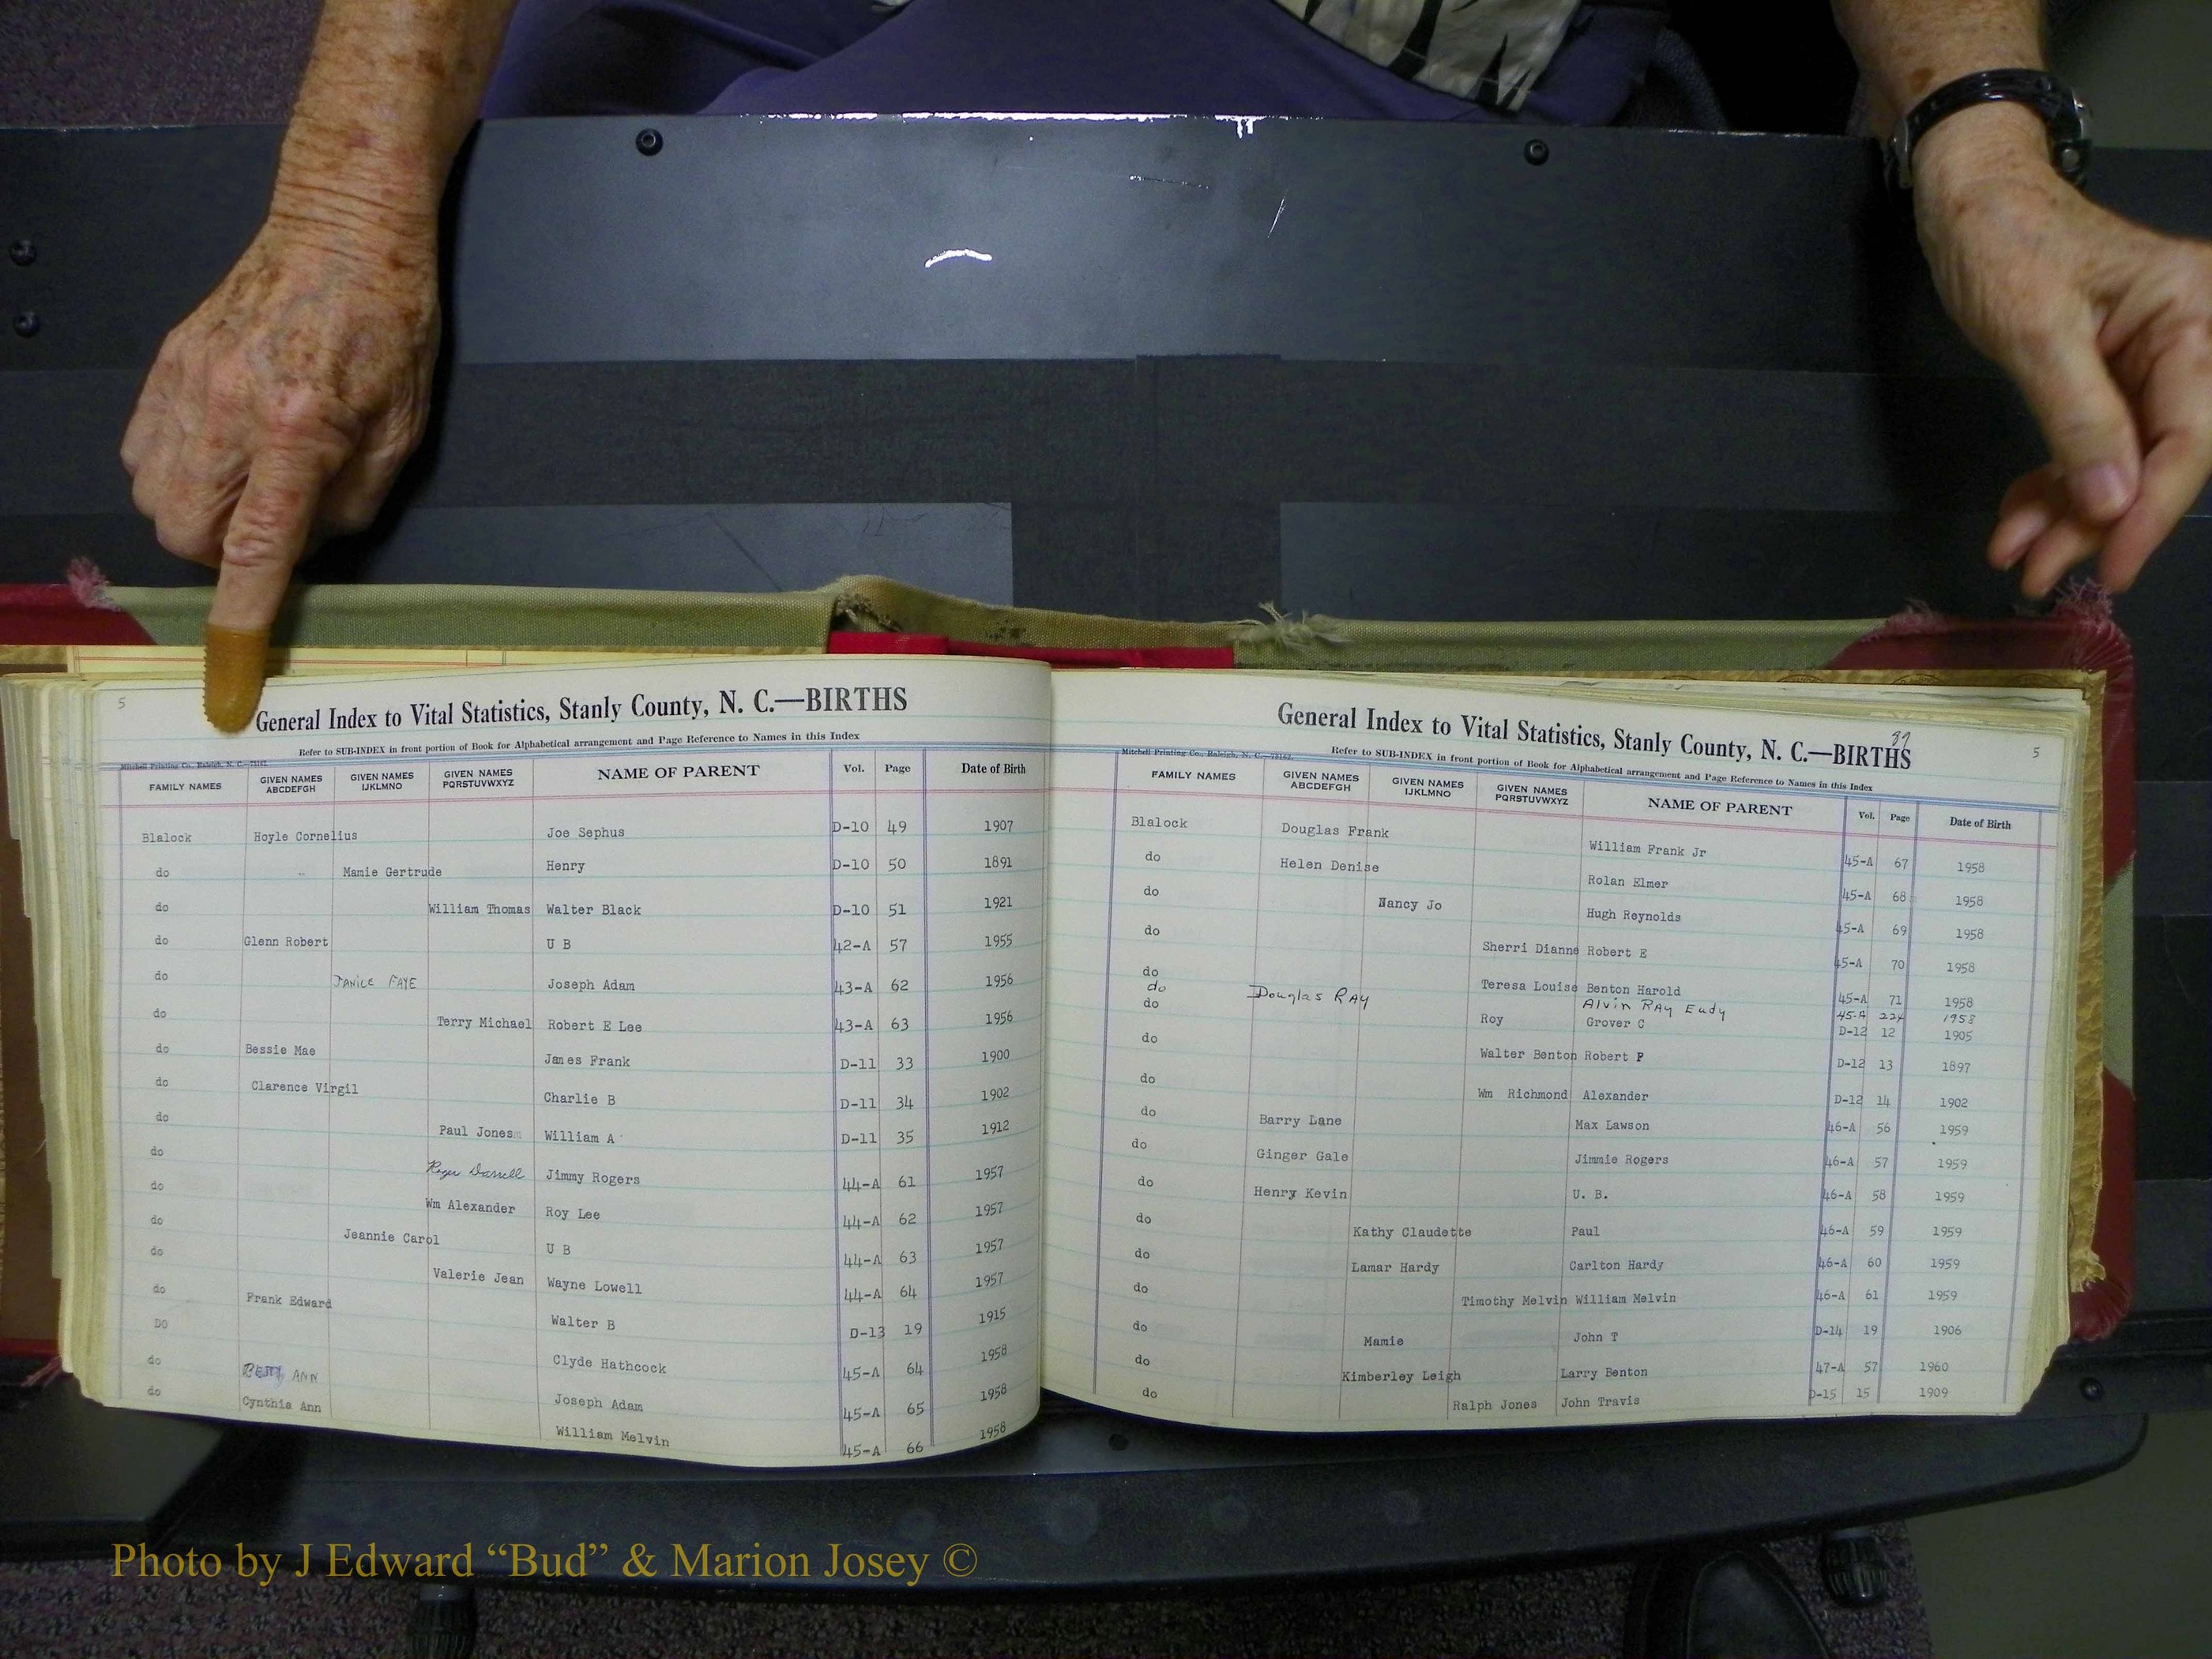 5
General Index to Vital Statistics, Stanly County, N. C.—BIRTHS
Refer to SUB-INDEX in front portion of Book for Alphabetical arrangement and Page Reference to Names in this Index
Mitchell Printing Co., Raleigh, N. C.
FAMILY NAMES GIVEN NAMES ABCDEFGH GIVEN NAMES IJKLMNO GIVEN NAMES PQRSTUVWXYZ NAME OF PARENT Vol. Page Date of Birth
Blalock Hoyle Cornelius Joe Sephus D-10 49 1907
do Mamie Gertrude Henry D-10 50 1891
do William Thomas Walter Black D-10 51 1921
do Glenn Robert U B 42-A 57 1955
do JANICE FAYE Joseph Adam 43-A 62 1956
do Terry Michael Robert E Lee 43-A 63 1956
do Bessie Mae James Frank D-11 33 1900
do Clarence Virgil Charlie B D-11 34 1902
do Paul Jones William A D-11 35 1912
do Roger Darrell Jimmy Rogers 44-A 61 1957
do Wm Alexander Roy Lee 44-A 62 1957
do Jeannie Carol U B 44-A 63 1957
do Valerie Jean Wayne Lowell 44-A 64 1957
do Frank Edward Walter B D-13 19 1915
DO Clyde Hathcock 45-A 64 1958
do BETTY ANN Joseph Adam 45-A 65 1958
do Cynthia Ann William Melvin 45-A 66 1958
General Index to Vital Statistics, Stanly County, N. C.—BIRTHS
5
Refer to SUB-INDEX in front portion of Book for Alphabetical arrangement and Page Reference to Names in this Index
Mitchell Printing Co., Raleigh, N. C.—73162
FAMILY NAMES GIVEN NAMES ABCDEFGH GIVEN NAMES IJKLMNO GIVEN NAMES PQRSTUVWXYZ NAME OF PARENT Vol. Page Date of Birth
Blalock Douglas Frank William Frank Jr 45-A 67 1958
do Helen Denise Rolan Elmer 45-A 68 1958
do Nancy Jo Hugh Reynolds 45-A 69 1958
do Sherri Dianne Robert E 45-A 70 1958
do Teresa Louise Benton Harold 45-A 71 1958
do Douglas RAY Alvin RAY Eudy 45-A 224 1958
do Roy Grover C D-12 12 1905
do Walter Benton Robert P D-12 13 1897
do Wm Richmond Alexander D-12 14 1902
do Barry Lane Max Lawson 46-A 56 1959
do Ginger Gale Jimmie Rogers 46-A 57 1959
do Henry Kevin U. B. 46-A 58 1959
do Kathy Claudette Paul 46-A 59 1959
do Lamar Hardy Carlton Hardy 46-A 60 1959
do Timothy Melvin William Melvin 46-A 61 1959
do Mamie John T D-14 19 1906
do Kimberley Leigh Larry Benton 47-A 57 1960
do Ralph Jones John Travis D-15 15 1909
Photo by J Edward “Bud” & Marion Josey ©